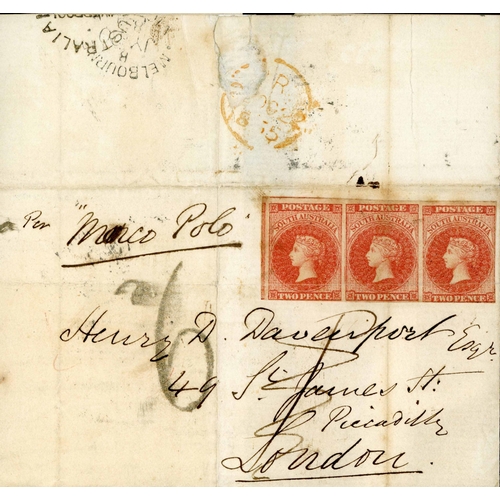 MELBOURN
TRALIA
R
OC 26
1855
Per "Marco Polo"
POSTAGE POSTAGE POSTAGE
SOUTH AUSTRALIA SOUTH AUSTRALIA SOUTH AUSTRALIA
TWO PENCE TWO PENCE TWO PENCE
6
Henry D. Davenport Esqr.
49 St. James St.
Piccadilly
London.